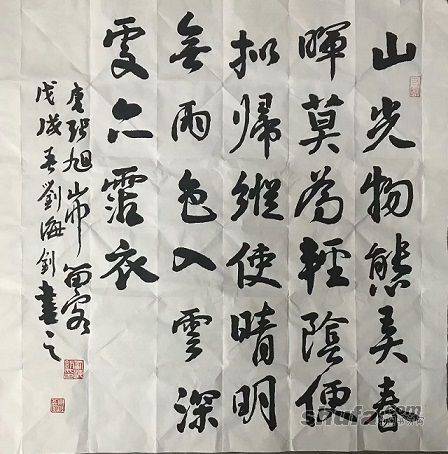 山光物態弄春
暉莫為輕陰便
拟歸縱使晴明
無雨色入雲深
處亦霑衣
唐張旭山中留客
戊戌春劉海釗書之